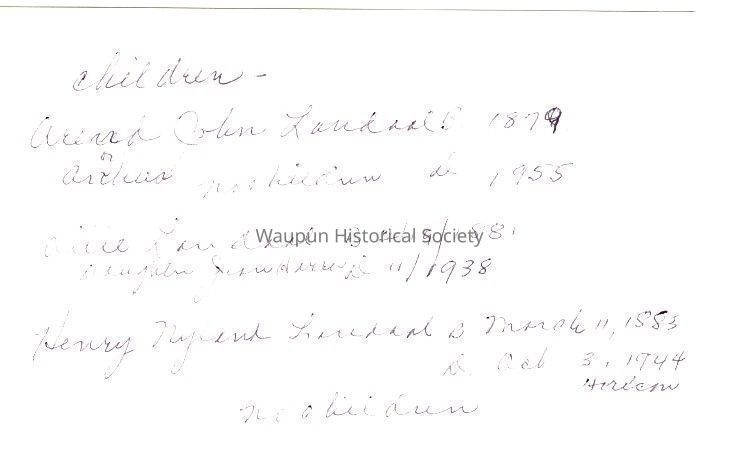 children -
Arend John Landaal B 1879
or
Arthur no children d 1955
Allie Landaal B
Waupun Historical Society
D 11/1938
Henry Nyland Landaal B March 11, 1883
D. Oct 3, 1944
Horicon
no children